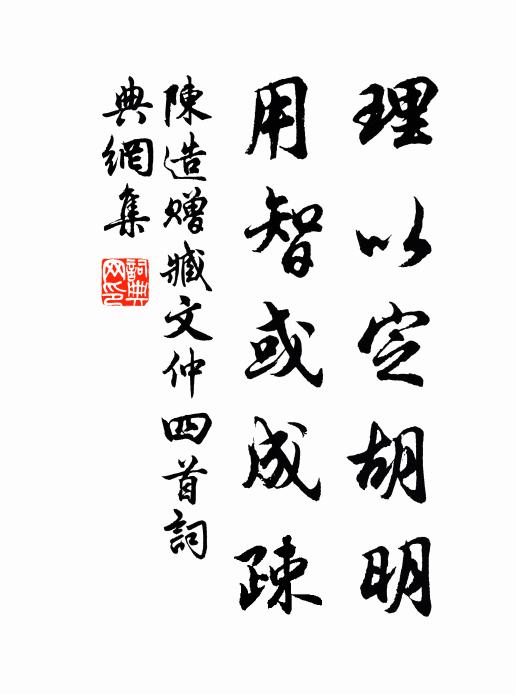 理以定胡明
用智或成疎
陳造贈臧文仲四首詞
典網集
詞典網印